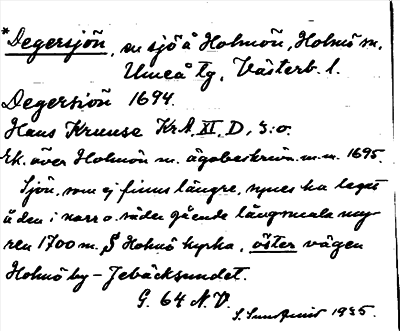 *Degersjön, en sjö å Holmön, Holmö sn.
Umeå tg, Västerb. l.
Degersiön 1694.
Hans Kruuse KrA, XI, D, 3:o.
Ek. över Holmön m. ägobeskrivn. m.m. 1695.
Sjön, som ej finns längre, synes ha legat
å den i norr o. söder gående långsmala my-
ren 1700 m. § Holmö kyrka, öster vägen
Holmö by - Jebäcksundet.
G. 64 N.V.
S. 1935.